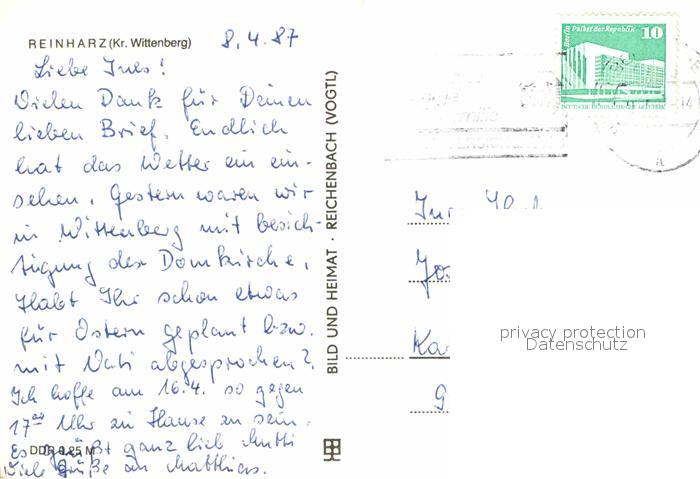 REINHARZ (Kr. Wittenberg) 8.4.87
Liebe Ines!
Vielen Dank für Deinen
lieben Brief. Endlich
hat das Wetter ein ein-
sehen. Gestern waren wir
in Wittenberg mit besich-
tigung der Domkirche.
Habt Ihr schon etwas
für Ostern geplant bzw.
mit Vati abgesprochen?
Ich hoffe am 16.4. so gegen
17⁰⁰ Uhr zu Hause zu sein.
Es grüßt ganz lieb Mutti
Viele Grüße an Matthias.
DDR 0,25 M
BILD UND HEIMAT · REICHENBACH (VOGTL)
Berlin Palast der Republik 10
DEUTSCHE DEMOKRATISCHE REPUBLIK
privacy protection
Datenschutz